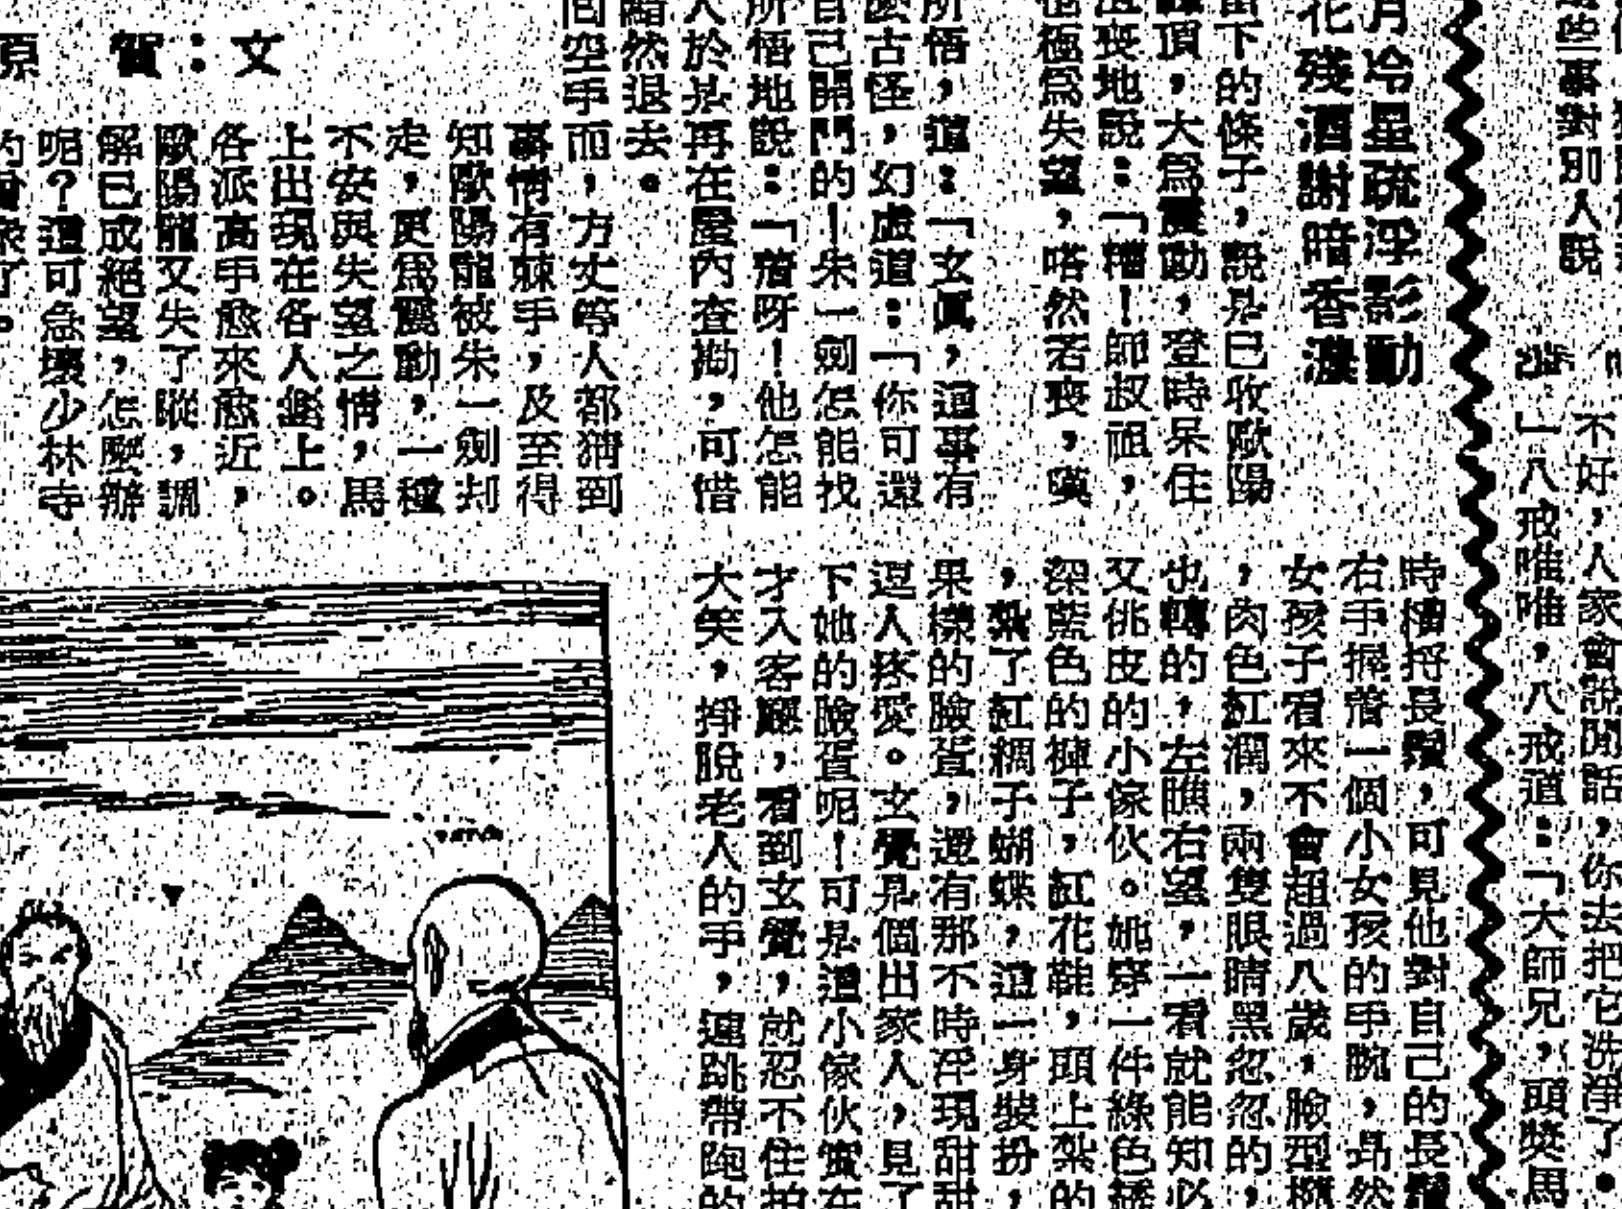 這些事對別人說
不好,人家會說閒話,你去把它洗淨了。
」八戒唯唯,八戒道:「大師兄,頭獎馬
月冷星疏浮影動
花殘酒謝暗香濃
留下的條子,說是已收歐陽
頂,大為震動,登時呆住
沮喪地說:「糟!師叔祖,
極為失望,嗒然若喪,嘆
所悟,道:「玄眞,這事有
麼古怪,幻虛道:「你可還
自己開門的!朱一劍怎能找
所悟地說:「着呀!他怎能
人於是再在屋內查拗,可惜
黯然退去。
空手而,方丈等人都猜到
文:賀 原
事情有棘手,及至得
知歐陽龍被朱一劍刦
走,更為震動,一種
不安與失望之情,馬
上出現在各人臉上。
各派高手愈來愈近,
歐陽龍又失了蹤,調
解已成絕望,怎麼辦
呢?這可急壞少林寺
的會衆了。
時縷捋長鬚,可見他對自己的長鬚
右手握着一個小女孩的手腕,昂然
女孩子看來不會超過八歲,臉型橢
,肉色紅潤,兩隻眼睛黑忽忽的,
也轉的,左瞧右望,一看就能知必
又佻皮的小傢伙。她穿一件綠色綉
深藍色的褲子,紅花鞋,頭上紮的
,紮了紅綢子蝴蝶,這一身裝扮,
果樣的臉蛋,還有那不時浮現甜甜
逗人疼愛。玄覺是個出家人,見了
下她的臉蛋呢!可是這小傢伙實在
才入客廳,看到玄覺,就忍不住拍
大笑,掙脫老人的手,連跳帶跑的